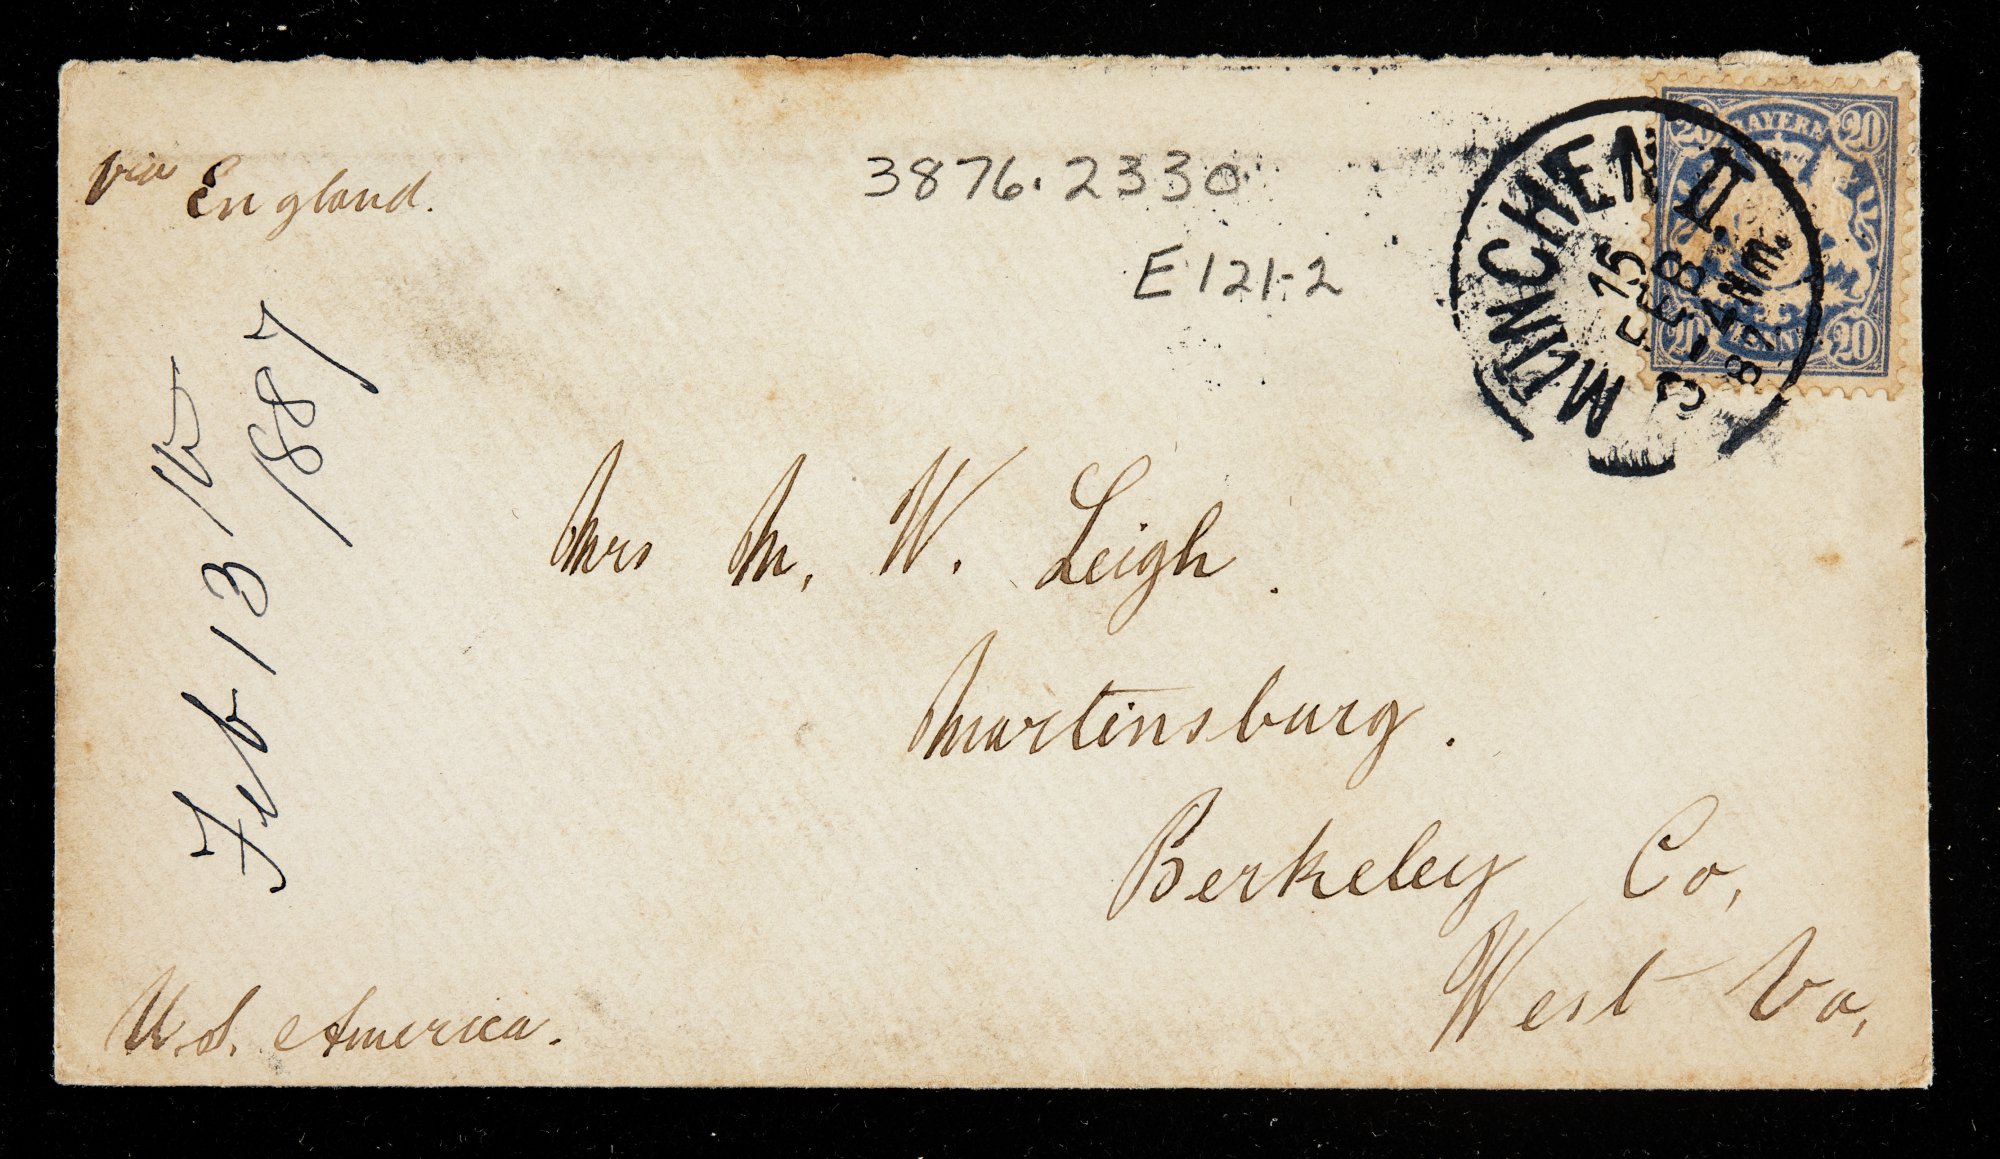 via England.
3876.2330
E121-2
MÜNCHEN II.
15
FEB
3-4NM.
87
20 BAYERN 20
20 PFENNIG 20
Mrs M. W. Leigh.
Martinsburg.
Berkeley Co,
West Va,
U.S. America.
Feb 13 1887